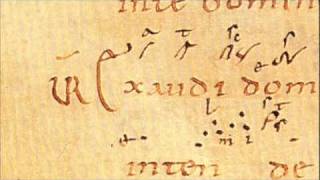 inte domin
VR Exaudi dom
inten de